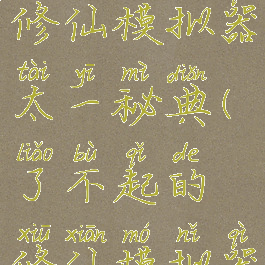 修仙模拟器
tài yī mì diǎn
太一秘典(
liǎo bù qǐ de
了不起的
xiū xiān mó nǐ qì
修仙模拟器